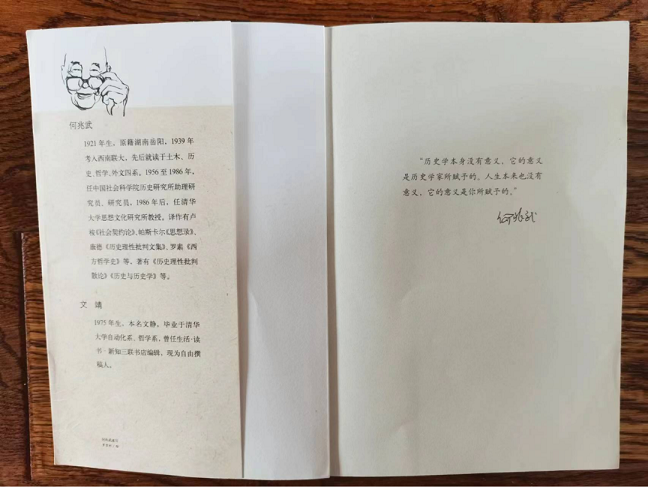 何兆武
1921 年生，原籍湖南岳阳，1939 年
考入西南联大，先后就读于土木、历
史、哲学、外文四系。1956 至 1986 年，
任中国社会科学院历史研究所助理研
究员、研究员。1986 年后，任清华
大学思想文化研究所教授。译作有卢
梭《社会契约论》、帕斯卡尔《思想录》、
康德《历史理性批判文集》、罗素《西
方哲学史》等，著有《历史理性批判
散论》《历史与历史学》等。
文 靖
1975 年生，本名文静，毕业于清华
大学自动化系、哲学系，曾任生活·读
书·新知三联书店编辑，现为自由撰
稿人。
“历史学本身没有意义，它的意义
是历史学家所赋予的，人生本来也没有
意义，它的意义是你所赋予的。”
何兆武